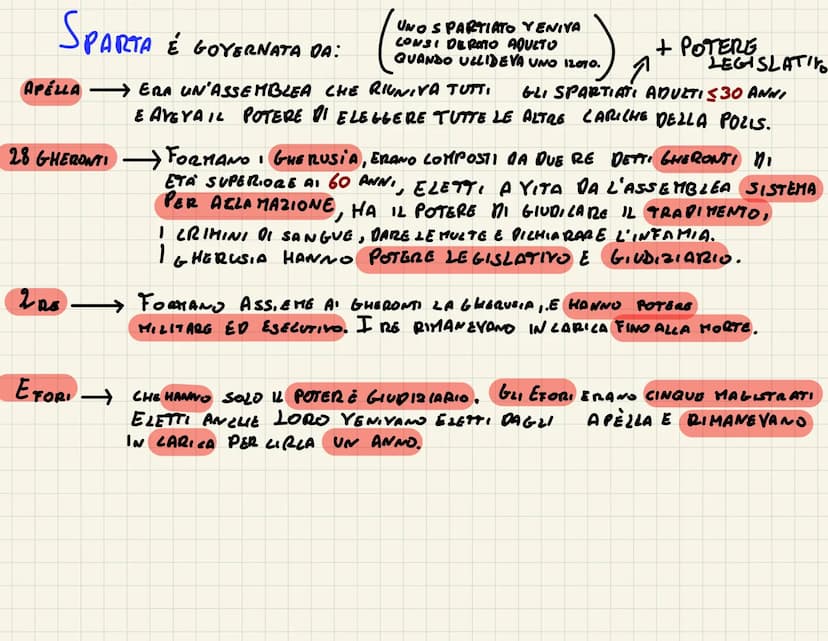 SPARTA É GOVERNATA DA:
(UNO SPARTIATO VENIVA
CONSIDERATO ADULTO
QUANDO UCCIDEVA UNO ILOTO.)
+ POTERE
LEGISLATIVO
APÉLLA → ERA UN'ASSEMBLEA CHE RIUNIVA TUTTI GLI SPARTIATI ADULTI ≤30 ANNI
E AVEVA IL POTERE DI ELEGGERE TUTTE LE ALTRE CARICHE DELLA POLIS.
28 GHERONTI → FORMANO I GHERUSIA, ERANO COMPOSTI DA DUE RE DETTI GHERONTI DI
ETÀ SUPERIORE AI 60 ANNI, ELETTI A VITA DA L'ASSEMBLEA SISTEMA
PER ACLAMAZIONE, HA IL POTERE DI GIUDICARE IL TRADIMENTO,
I CRIMINI DI SANGUE, DARE LE MULTE E DICHIARARE L'INFAMIA.
I GHERUSIA HANNO POTERE LEGISLATIVO E GIUDIZIARIO.
2 RE → FORMANO ASSIEME AI GHERONTI LA GHERUSIA, E HANNO POTERE
MILITARE ED ESECUTIVO. I RE RIMANEVANO IN CARICA FINO ALLA MORTE.
EFORI → CHE HANNO SOLO IL POTERE GIUDIZIARIO. GLI EFORI ERANO CINQUE MAGISTRATI
ELETTI ANCHE LORO VENIVANO ELETTI DAGLI APÈLLA E RIMANEVANO
IN CARICA PER CIRCA UN ANNO.